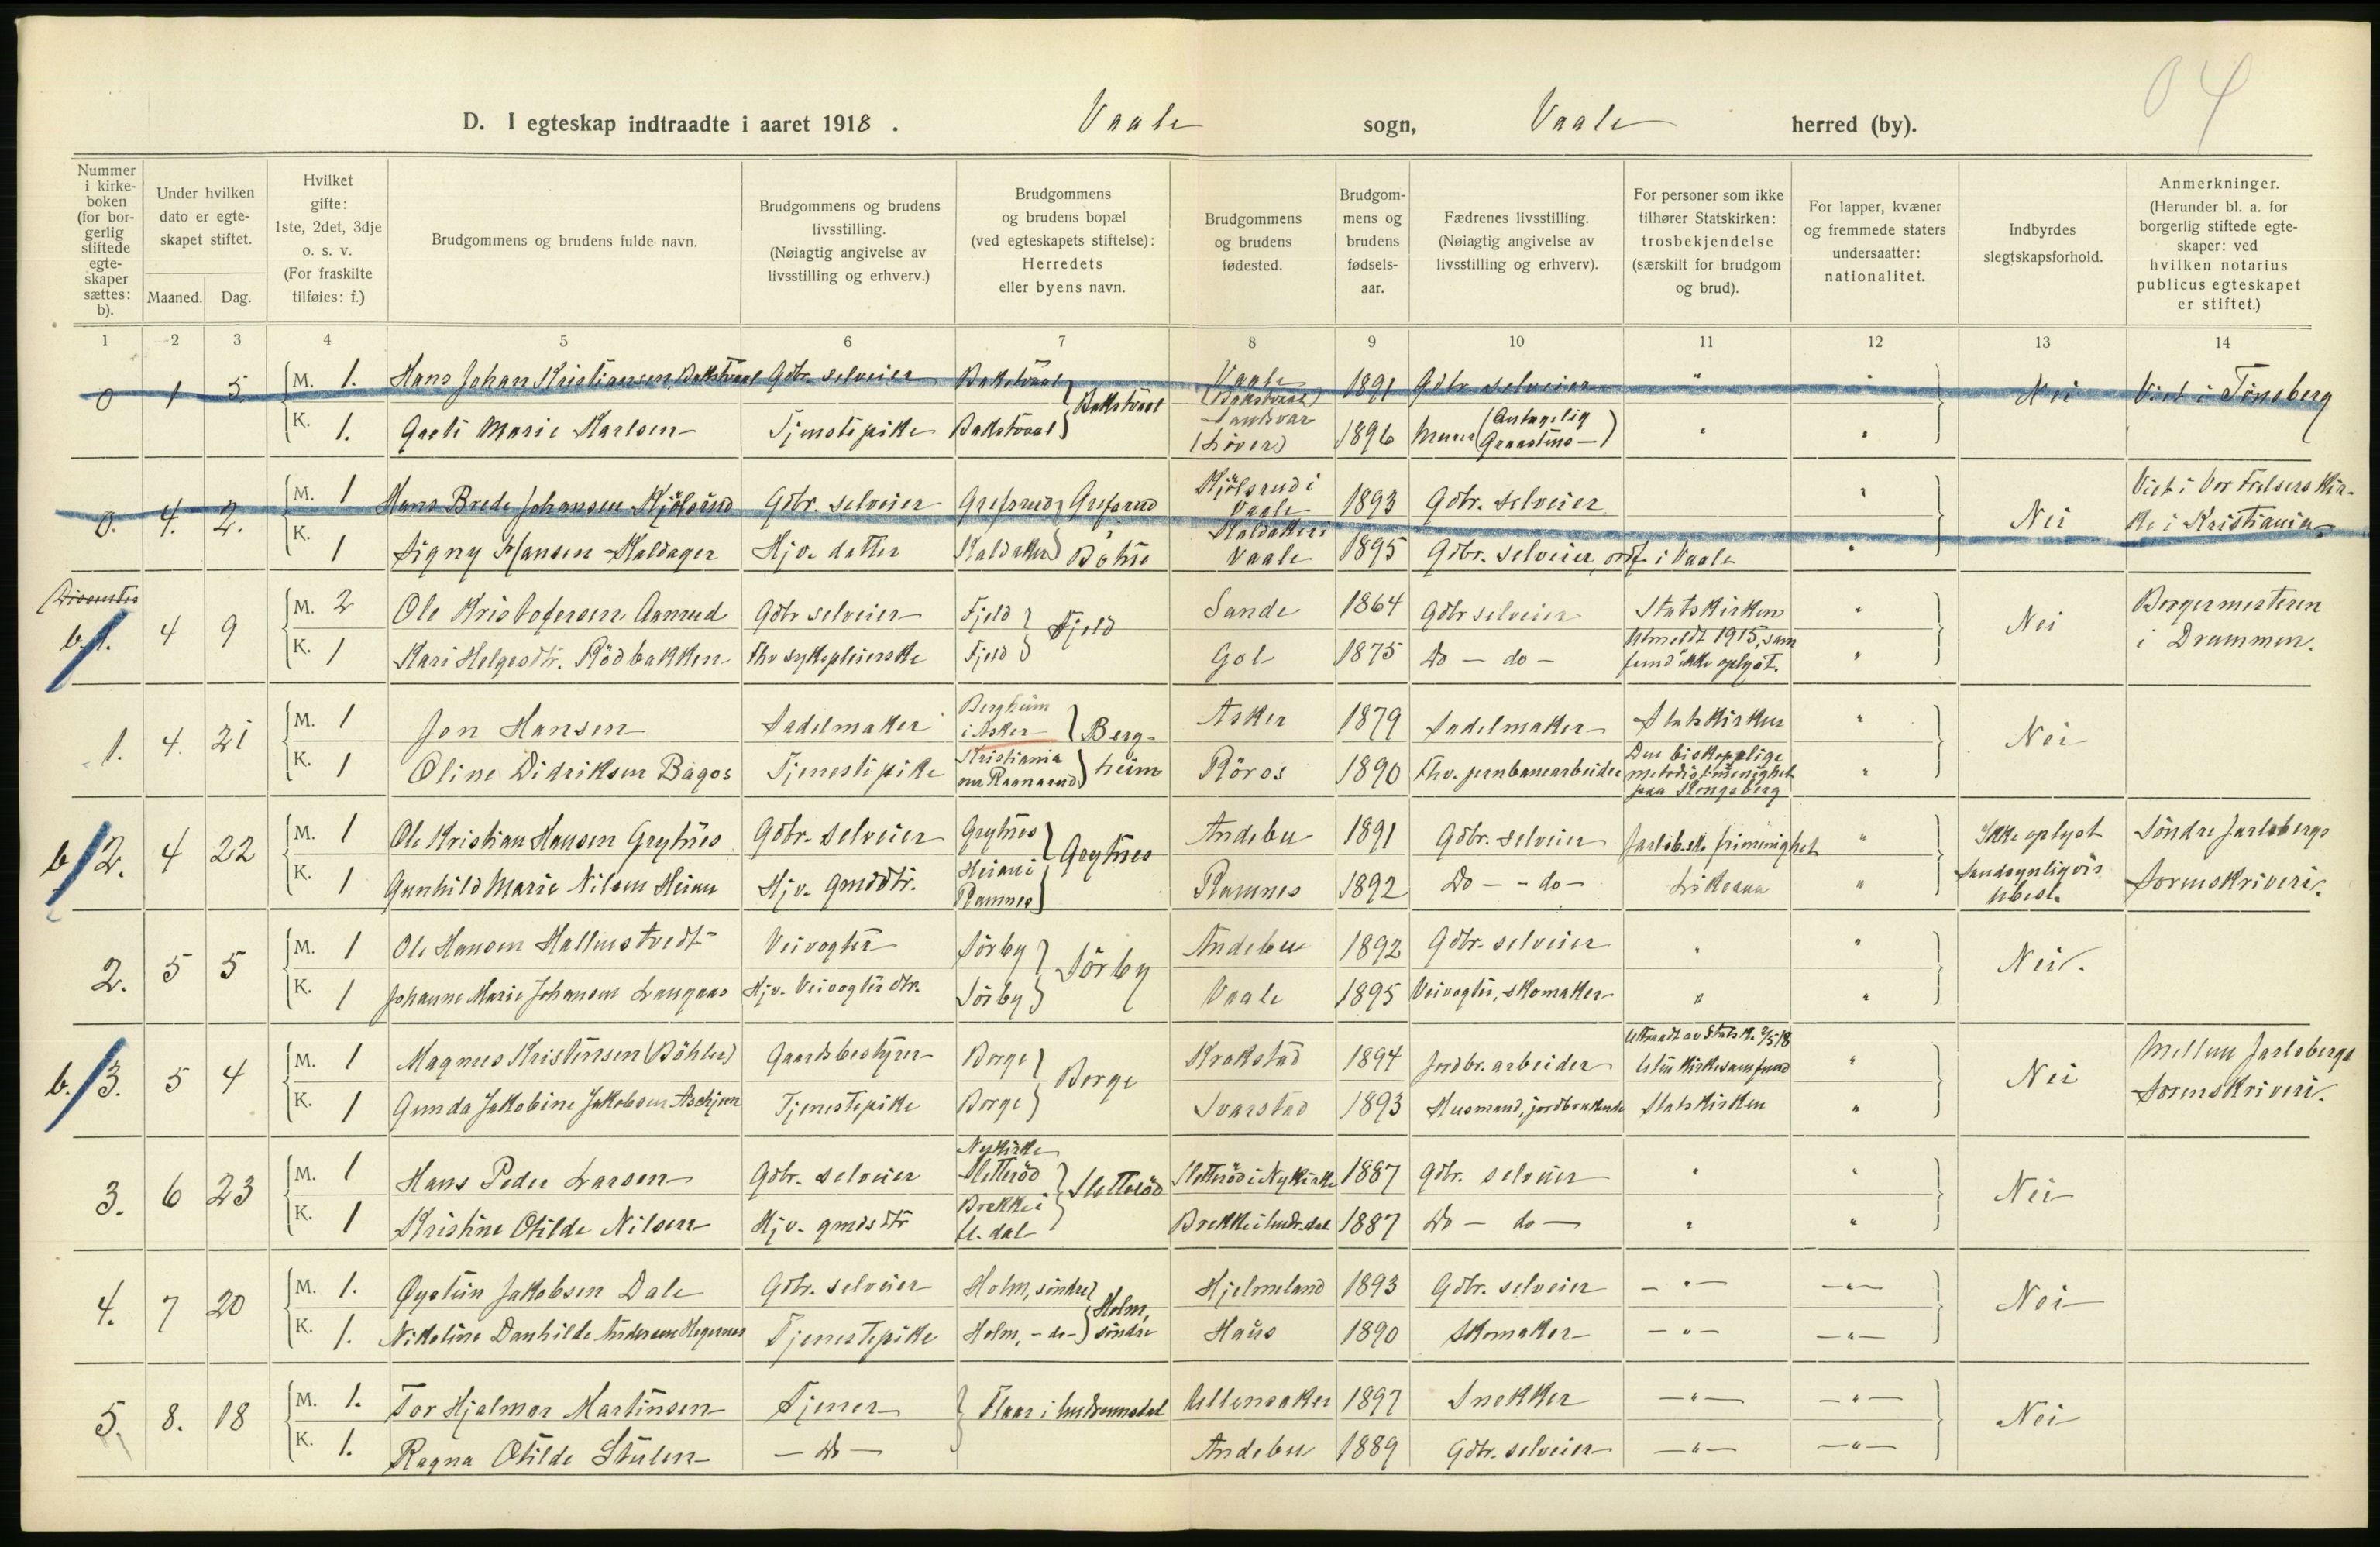 04
D. I egteskap indtraadte i aaret 1918. Vaale sogn, Vaale herred (by).
Nummer i kirkeboken (for borgerlig stiftede egteskaper sættes: b). | Under hvilken dato er egteskapet stiftet. Maaned. Dag. | Hvilket gifte: 1ste, 2det, 3dje o. s. v. (For fraskilte tilføies: f.) | Brudgommens og brudens fulde navn. | Brudgommens og brudens livsstilling. (Nøiagtig angivelse av livsstilling og erhverv.) | Brudgommens og brudens bopæl (ved egteskapets stiftelse): Herredets eller byens navn. | Brudgommens og brudens fødested. | Brudgommens og brudens fødselsaar. | Fædrenes livsstilling. (Nøiagtig angivelse av livsstilling og erhverv). | For personer som ikke tilhører Statskirken: trosbekjendelse (særskilt for brudgom og brud). | For lapper, kvæner og fremmede staters undersaatter: nationalitet. | Indbyrdes slegtskapsforhold. | Anmerkninger. (Herunder bl. a. for borgerlig stiftede egteskaper: ved hvilken notarius publicus egteskapet er stiftet.)
1 2 3 4 5 6 7 8 9 10 11 12 13 14
0 1 5. M. 1. Hans Johan Kristiansen, Bakstvaal Gdbr. selveier Bakstvaal Vaale (Bakstvaal) 1891 Gdbr. selveier " " Nei Viet i Tønsberg
K. 1. Marie Karlsen Tjenestepike Bakstvaal } Bakstvaal Sandsvær 1896 Murer (Antagelig Graastens—) " "
0. 4. 2. M. 1 Hans Brede Johansen Kjølsrud Gdbr. selveier Grefsrud Grefsrud Kjølsrud i Vaale 1893 Gdbr. selveier " Nei Viet i Vor Frelsers Kirke i Kristiania
K. 1 Signy Hansen Kaldager Hjv. datter Kaldaker Kaldaker i Vaale 1895 Gdbr. selveier, ordf. i Vaale "
b. 1. 4 9 M. 2 Ole Kristofersen Aamrud Gdbr selveier Fjeld } Fjeld Sande 1864 Gdbr selveier Statskirken " Nei Borgermesteren i Drammen.
K. 1 Kari Helgesdtr. Rödbakken Fhv sykepleierske Fjeld Gol 1875 Do — do — Utmeldt 1915, samfund ikke oplyst. "
1. 4. 21 M. 1 Jon Hansen Sadelmaker Bergheim i Asker } Bergheim Asker 1879 Sadelmaker Statskirken " Nei
K. 1 Oline Didriksen Bagøs Tjenestepike Kristiania Röros 1890 Fhv. jernbanearbeider Den biskoppelige metodistmenighet paa Kongsberg "
b/2. 4 22 M. 1 Ole Kristian Hansen Grytnes Gdbr. selveier Grytnes } Grytnes Andebu 1891 Gdbr. selveier Jarlsb.ske frimenighet " Ikke oplyst Sandsynligvis ubesl. Söndre Jarlsbergs Sorenskriveri.
K. 1 Gunhild Marie Nilsen Heian Hjv. gmddtr. Heian i Ramnes Ramnes 1892 Do — do — Likesaa "
2. 5 5 M. 1 Ole Hansen Hallenstvedt Veivogter Sörby } Sörby Andebu 1892 Gdbr. selveier " " Nei.
K. 1 Johanne Marie Johansen Langaas Hjv. Veivogterdtr. Sörby Vaale 1895 Veivogter, skomaker " "
b./3. 5 4 M. 1 Magnus Kristensen (Böhler) Gaardsbestyrer Borge } Borge Krokstad 1894 Jordbr. arbeider Uttraadt av Statsk. 2/5 18 Uten kirkesamfund " Nei Mellem Jarlsbergs Sorenskriveri.
K. 1 Gunda Jakobine Jakobsen Askjem Tjenestepike Borge Svarstad 1893 Husmand, jordbrukende Statskirken "
3. 6 23 M. 1 Hans Peder Larsen Gdbr. selveier Nykirke Sletteröd } Sletteröd Sletteröd i Nykirke 1887 Gdbr. selveier " " Nei
K. 1 Kristine Otilde Nilsen Hjv. gmdsdtr Brekke i U.dal Brekke i Undr.dal 1887 Do — do — " "
4. 7 20 M. 1. Øystein Jakobsen Dale Gdbr. selveier Holm, söndre } Holm, söndre Hjelmeland 1893 Gdbr. selveier — " — — " — Nei
K. 1. Nikoline Danhilde Andersen Tjenestepike Holm, — do — Haus 1890 Skomaker — " — — " —
5. 8. 18 M. 1. Tor Hjalmar Martinsen Tjener } Flaar i Undrumsdal Ullensaker 1897 Snekker — " — — " — Nei
K. 1. Ragna Otilde Stulen — Do — Andebu 1889 Gdbr. selveier — " — — " —